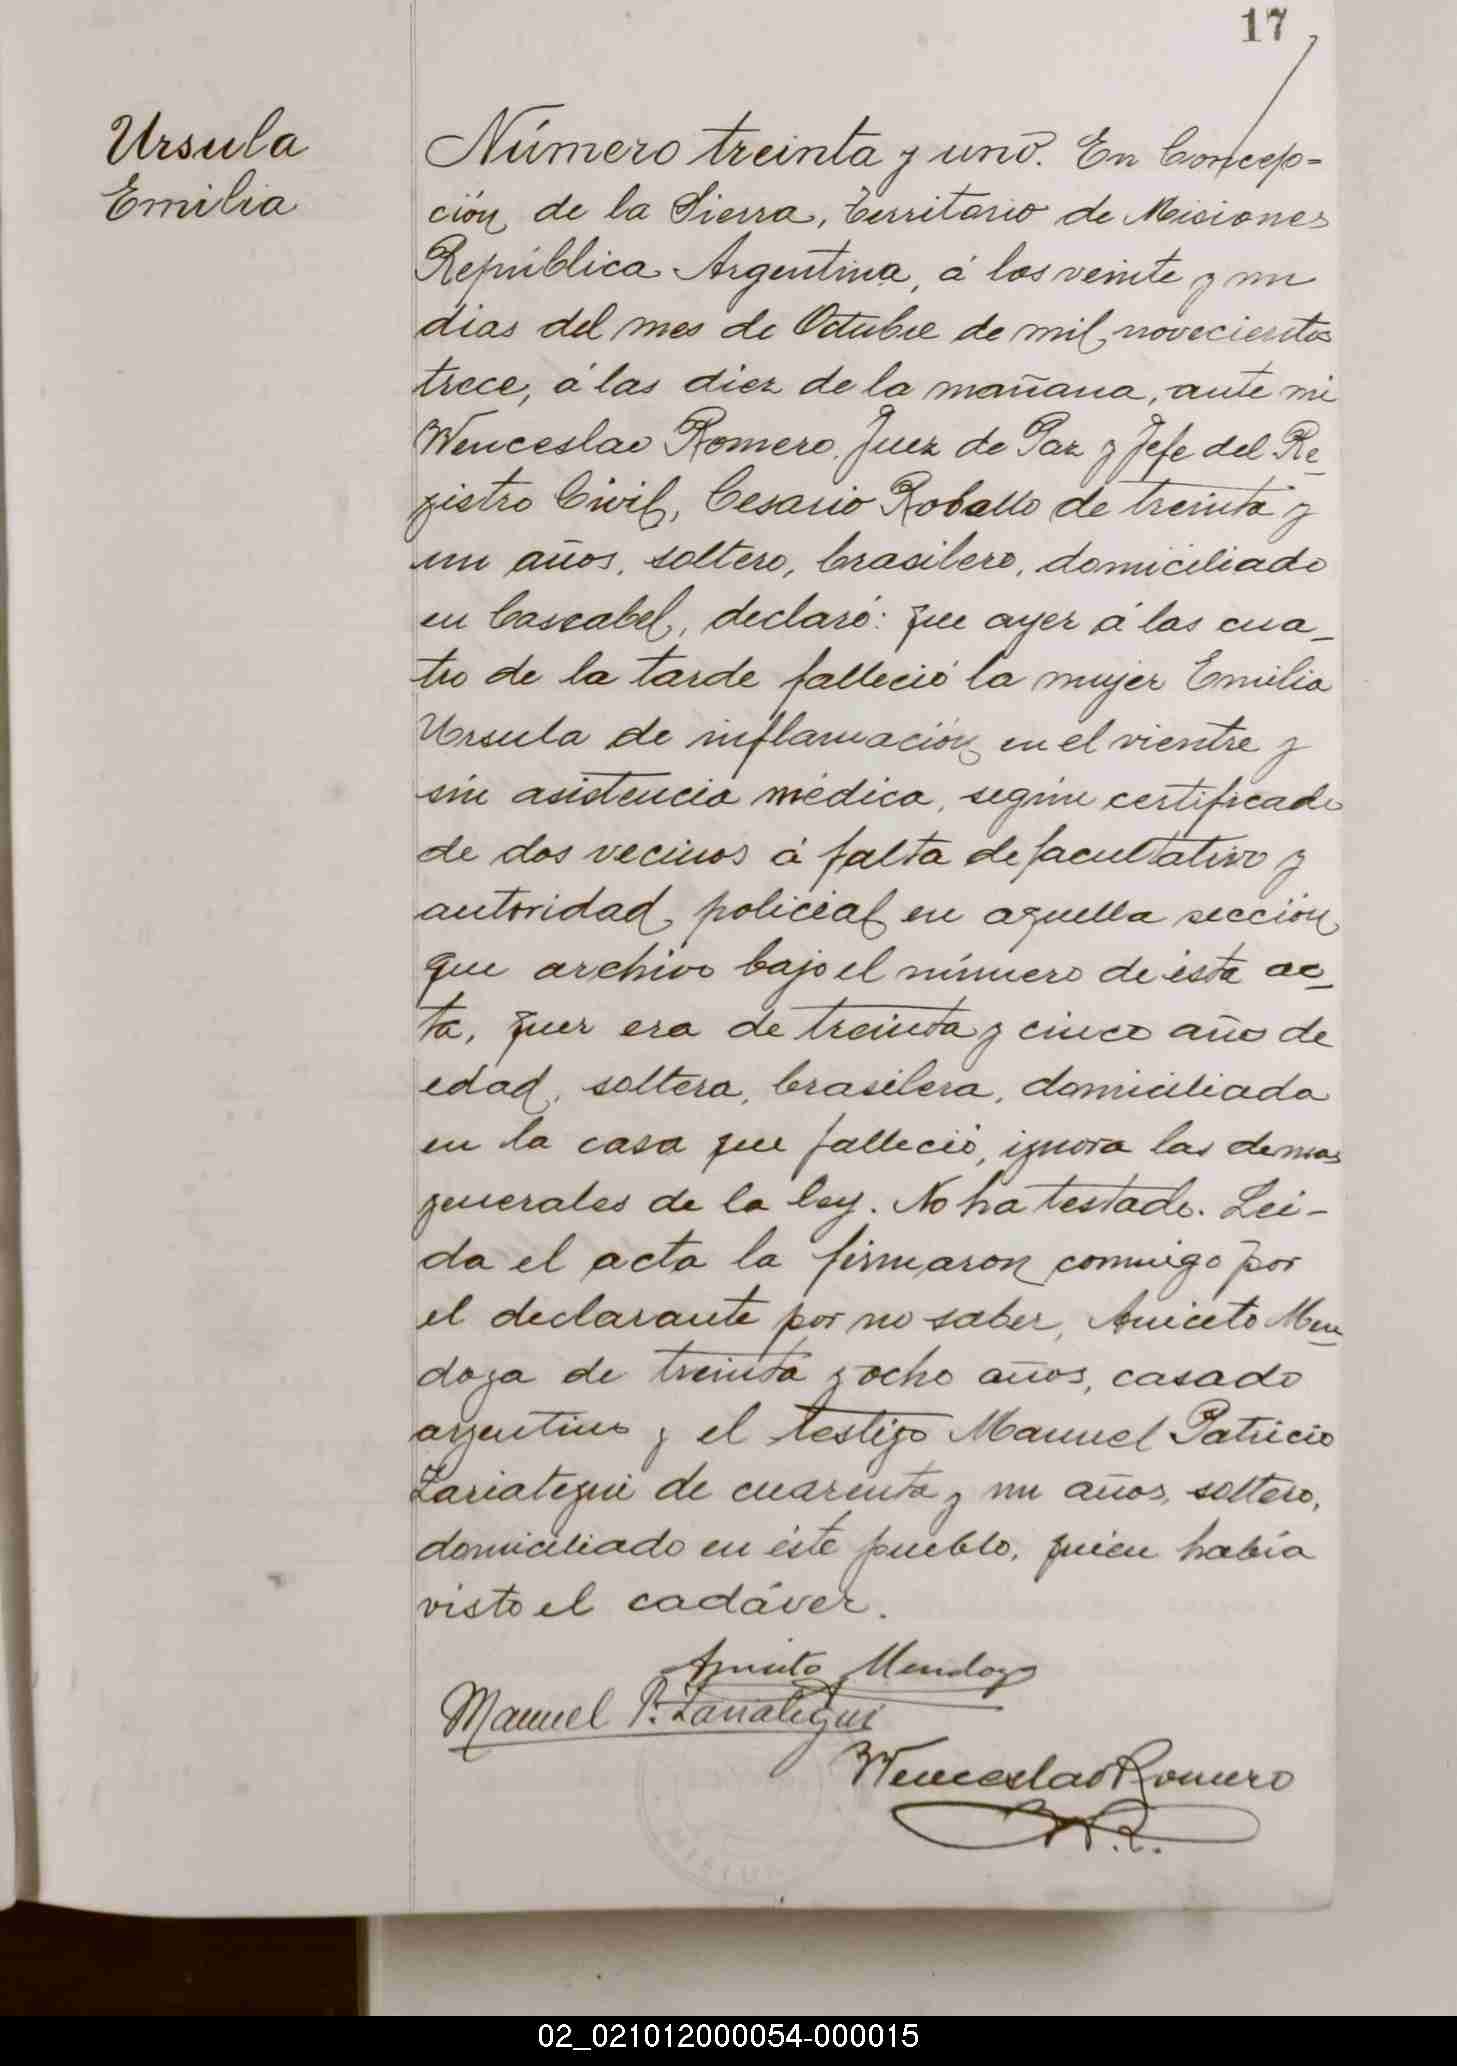 17
Ursula
Emilia
Número treinta y uno. En Concep=
ción de la Sierra, territorio de Misiones
República Argentina, á los veinte y un
dias del mes de Octubre de mil novecientos
trece, á las diez de la mañana, ante mi
Wenceslao Romero, Juez de Paz y Jefe del Re-
gistro Civil, Cesario Roballo de treinta y
un años, soltero, brasilero, domiciliado
en Cascabel, declaró: que ayer á las cua-
tro de la tarde falleció la mujer Emilia
Ursula de inflamación en el vientre y
sin asistencia médica, según certificado
de dos vecinos á falta de facultativo y
autoridad policial en aquella sección
que archivo bajo el número de ésta ac-
ta, quer era de treinta y cinco año de
edad, soltera, brasilera, domiciliada
en la casa que falleció, ignora las demas
generales de la ley. No ha testado. Lei-
da el acta la firmaron conmigo por
el declarante por no saber, Aniceto Men-
doza de treinta y ocho años, casado
argentino y el testigo Manuel Patricio
Zariategui de cuarenta y un años, soltero,
domiciliado en éste pueblo, quien había
visto el cadáver.
Aniceto Mendoza
Manuel P. Zariategui
Wenceslao Romero
W.R.
02_021012000054-000015